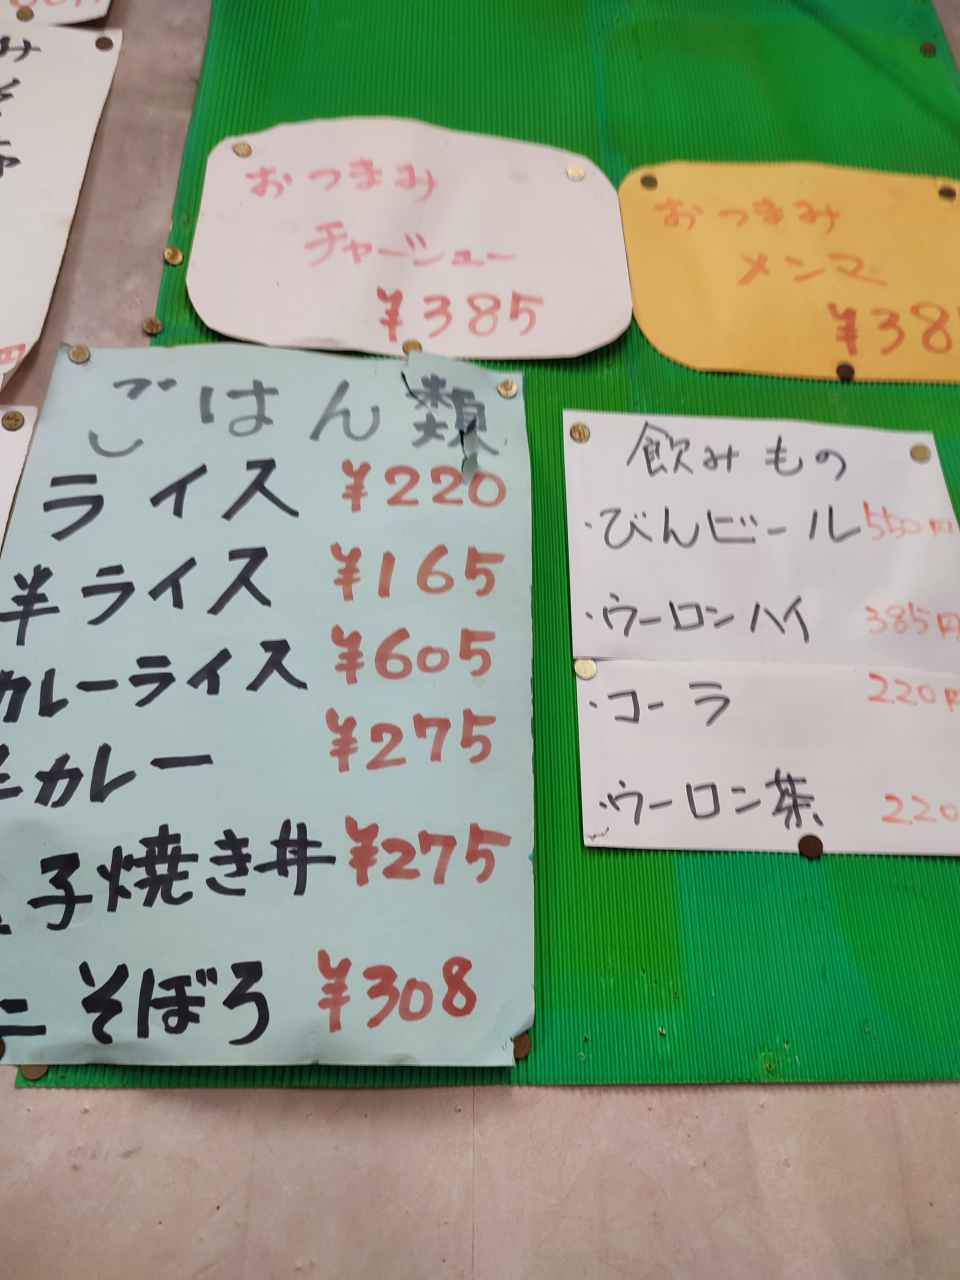 おつまみ
チャーシュー
¥385
おつまみ
メンマ
¥38
ごはん類
ライス ¥220
半ライス ¥165
カレーライス ¥605
半カレー ¥275
子焼き丼 ¥275
ニそぼろ ¥308
飲みもの
・びんビール 550円
・ウーロンハイ 385円
・コーラ 220円
・ウーロン茶 220